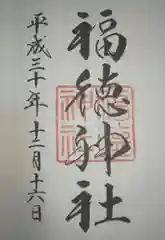 福徳神社
平成三十年十二月十六日